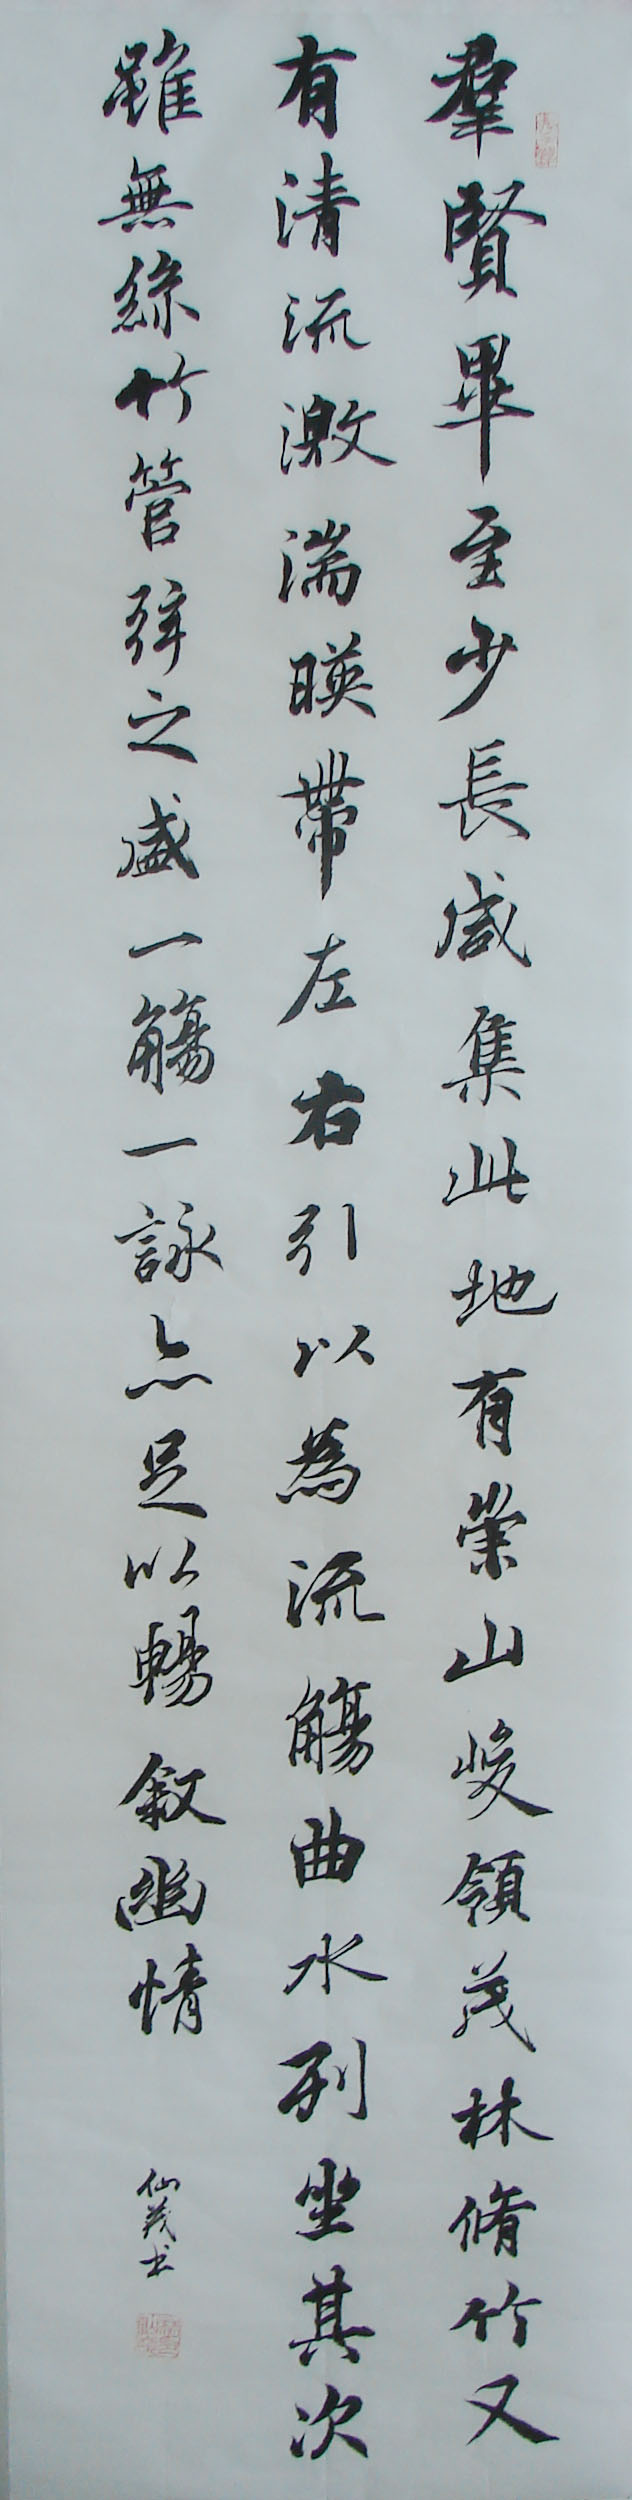 羣賢畢至少長咸集此地有崇山峻領茂林脩竹又
有清流激湍暎帶左右引以為流觴曲水列坐其次
雖無絲竹管弦之盛一觴一詠亦足以暢敘幽情
仙茂书